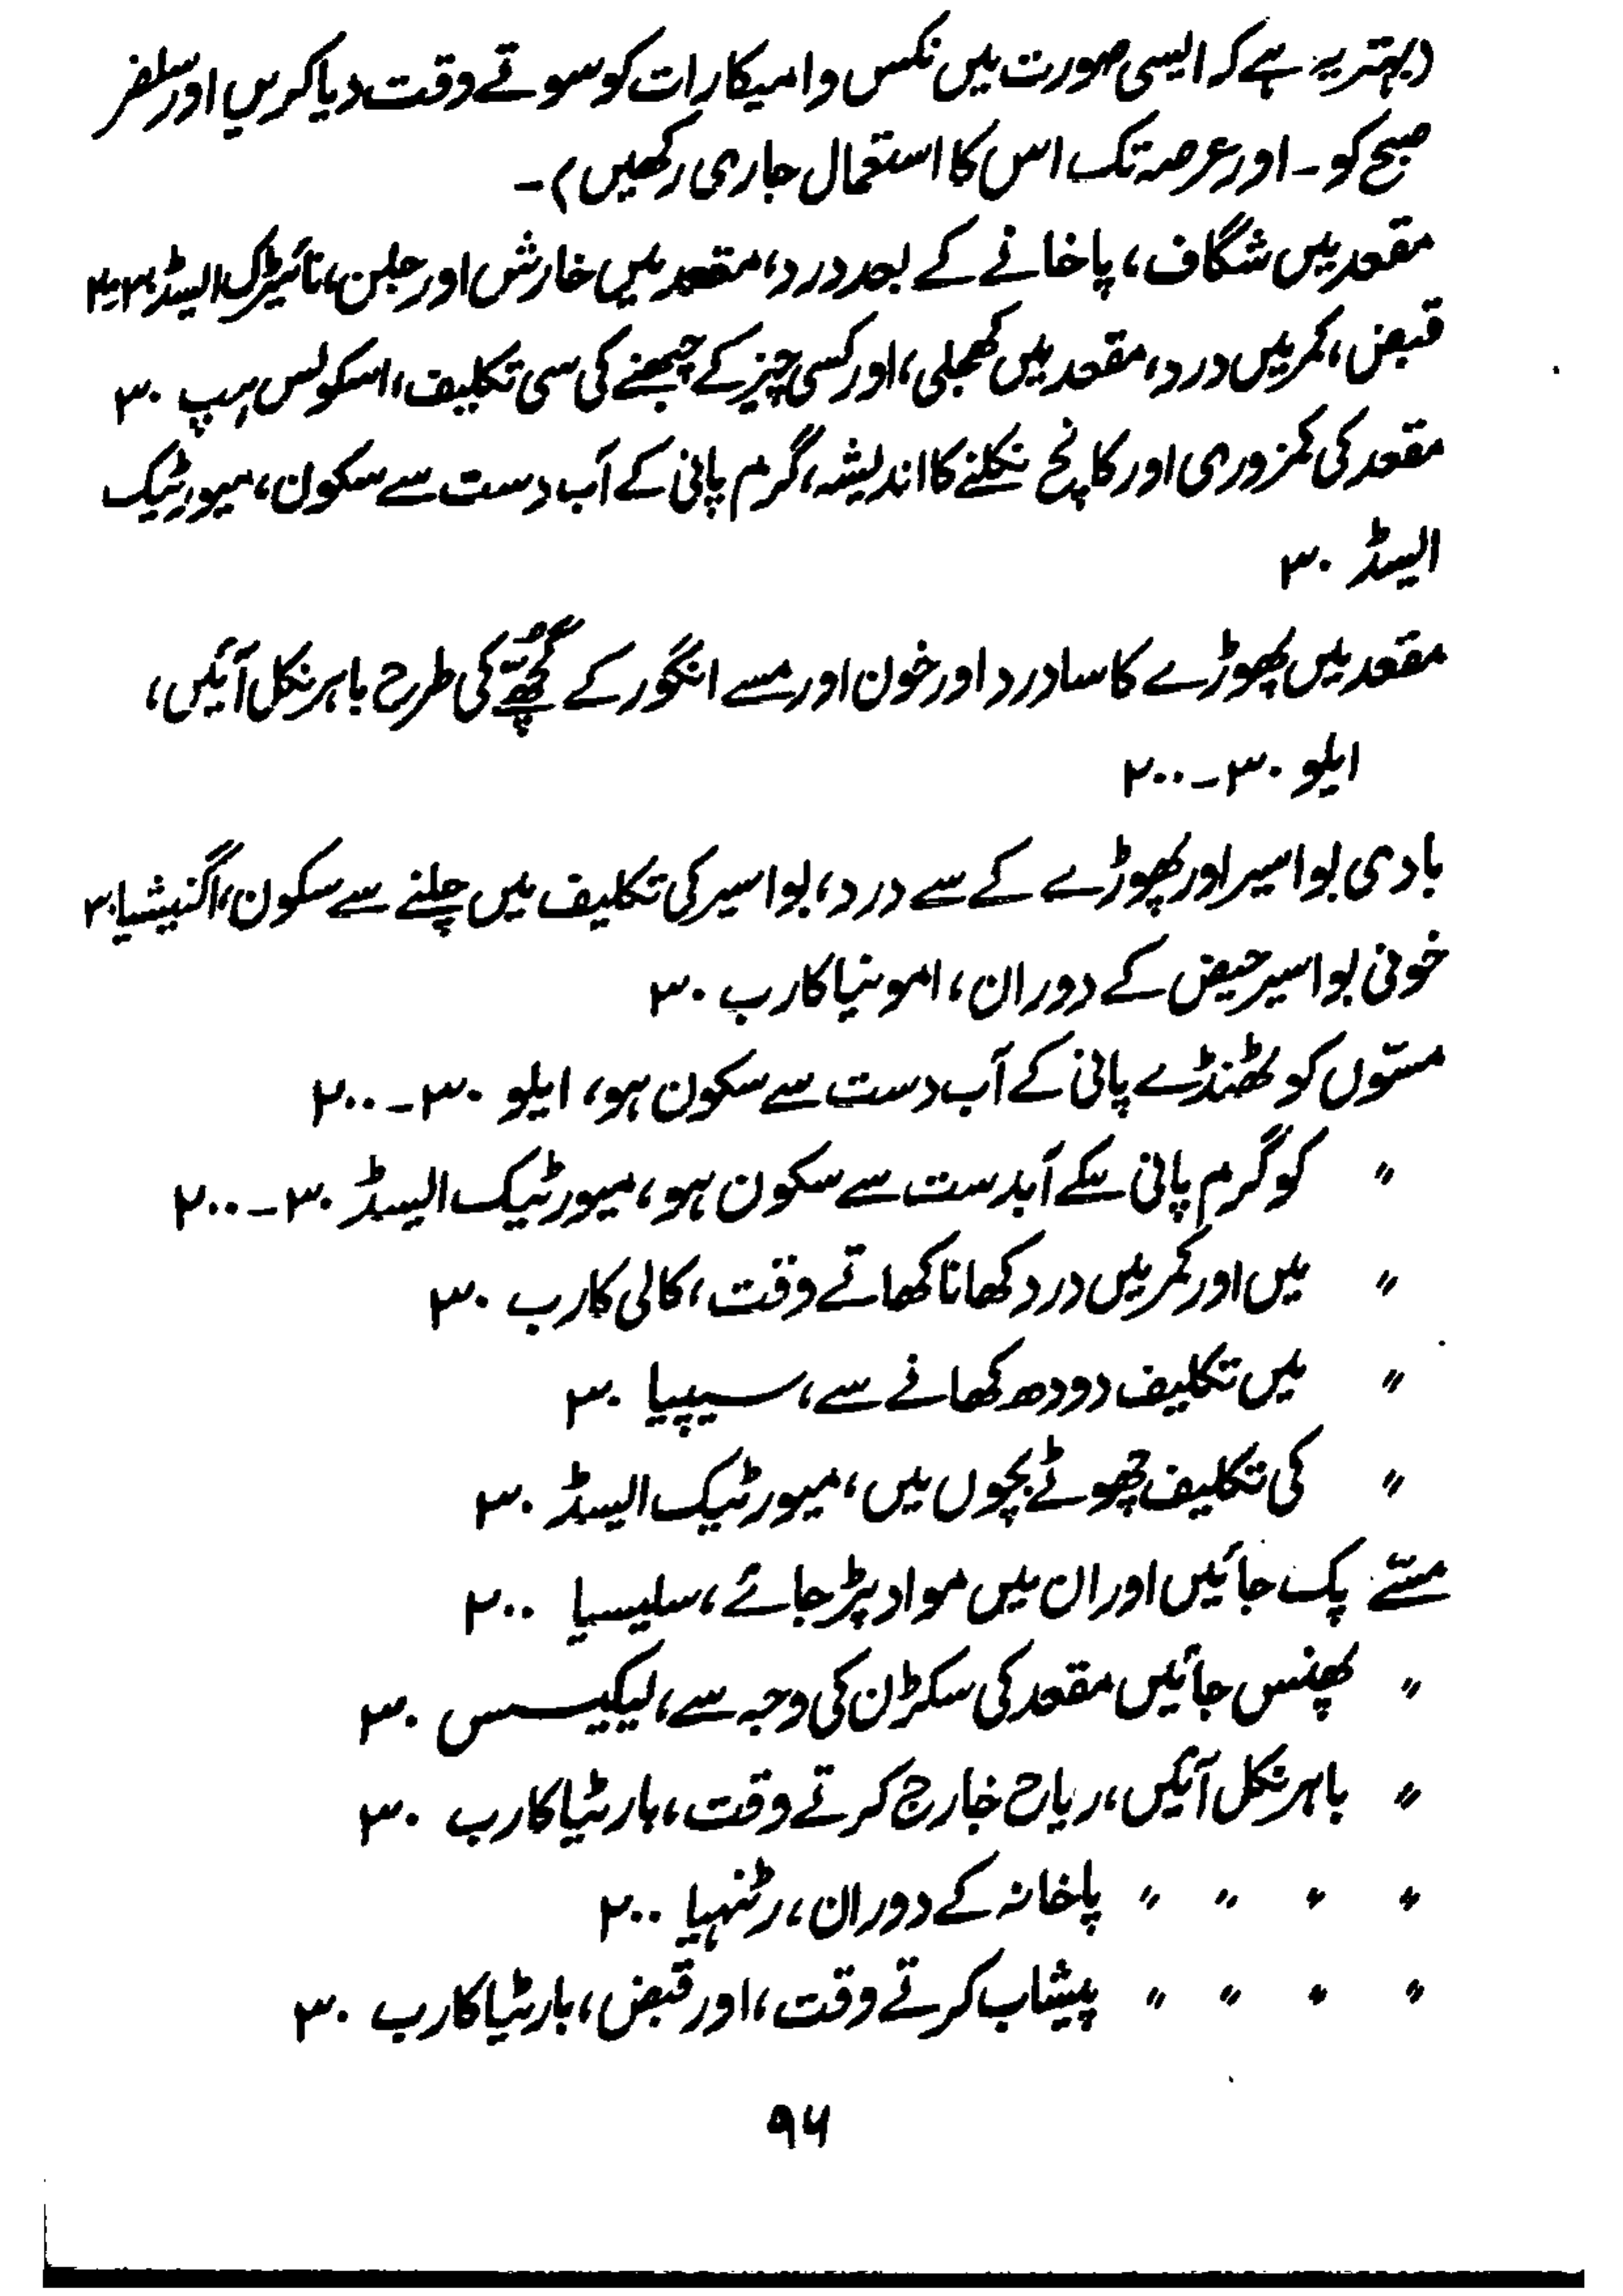 (بہتر یہ ہے کہ ایسی صورت میں نکس وامیکا رات کو سوتے وقت دیا کریں اور سلفر
صبح کو ۔ اور عرصہ تک اس کا استعمال جاری رکھیں)۔
مقعد میں شگاف، پاخانے کے بعد درد، مقعد میں خارش اور جلن، نائیٹرک ایسڈ
قبض، کمر میں درد، مقعد میں کھجلی، اور کسی چیز کے چبھنے کی سی تکلیف، اسکولس ہپ ۳۰
مقعد کی کمزوری اور کانچ نکلنے کا اندیشہ، گرم پانی کے آب دست سے سکون، میورٹیک
ایسڈ ۳۰
مقعد میں پھوڑے کا سا درد اور خون اور مسے انگور کے گُچھّے کی طرح باہر نکل آئیں،
ایلو ۳۰ـ۲۰۰
بادی بواسیر اور پھوڑے کے سے درد، بواسیر کی تکلیف میں چلنے سے سکون، اگنیشیا ۳۰
خونی بواسیر حیض کے دوران، امونیا کارب ۳۰
مسّوں کو ٹھنڈے پانی کے آب دست سے سکون ہو، ایلو ۳۰ـ۲۰۰
〃 کو گرم پانی کے آبدست سے سکون ہو، میورٹیک ایسڈ ۳۰ـ۲۰۰
〃 میں اور کمر میں درد کھانا کھاتے وقت، کالی کارب ۳۰
〃 میں تکلیف دودھ کھانے سے، سیپیا ۳۰
〃 کی تکلیف چھوٹے بچوں میں، میورٹیک ایسڈ ۳۰
مسّے پک جائیں اور ان میں مواد پڑ جائے، سلیسیا ۲۰۰
〃 پھنس جائیں مقعد کی سکڑن کی وجہ سے، لیکیسس ۳۰
〃 باہر نکل آئیں، ریاح خارج کرتے وقت، بارئٹیا کارب ۳۰
〃 〃 〃 〃 پاخانہ کے دوران، رٹنہیا ۲۰۰
〃 〃 〃 〃 پیشاب کرتے وقت، اور قبض، بارئٹیا کارب ۳۰
۹۶